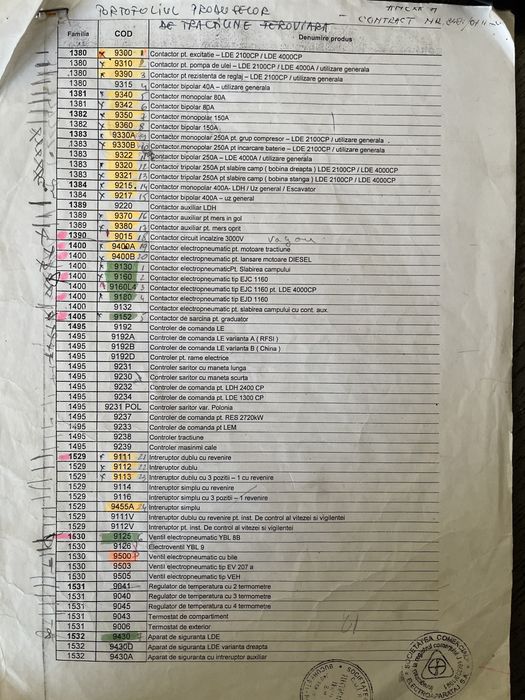 PORTOFOLIUL PRODUSELOR
DE TRACTIUNE FEROVIARA
CONTRACT NR.
Familia COD Denumire produs
1380 9300 1 Contactor pt. excitatie – LDE 2100CP / LDE 4000CP
1380 9310 2 Contactor pt. pompa de ulei – LDE 2100CP / LDE 4000A / utilizare generala
1380 9390 3 Contactor pt rezistenta de reglaj – LDE 2100CP / utilizare generala
1380 9315 4 Contactor bipolar 40A – utilizare generala
1381 9340 5 Contactor monopolar 80A
1381 9342 6 Contactor bipolar 80A
1382 9350 7 Contactor monopolar 150A
1382 9360 8 Contactor bipolar 150A
1383 9330A Contactor monopolar 250A pt. grup compresor – LDE 2100CP / utilizare generala
1383 9330B Contactor monopolar 250A pt incarcare baterie – LDE 2100CP / utilizare generala
1383 9322 Contactor bipolar 250A – LDE 4000A / utilizare generala
1383 9320 12 Contactor tripolar 250A pt slabire camp ( bobina dreapta ) LDE 2100CP / LDE 4000CP
1383 9321 13 Contactor tripolar 250A pt slabire camp ( bobina stanga ) LDE 2100CP / LDE 4000CP
1384 9215 14 Contactor monopolar 400A- LDH / Uz general / Escavator
1384 9217 15 Contactor bipolar 400A – uz general
1389 9220 Contactor auxiliar LDH
1389 9370 16 Contactor auxiliar pt mers in gol
1389 9380 17 Contactor auxiliar pt. mers oprit
1390 9015 18 Contactor circuit incalzire 3000V vagon
1400 9400A 19 Contactor electropneumatic pt. motoare tractiune
1400 9400B 20 Contactor electropneumatic pt. lansare motoare DIESEL
1400 9130 1 Contactor electropneumaticPt. Slabirea campului
1400 9160 2 Contactor electropneumatic tip EJC 1160
1400 9160L4 3 Contactor electropneumatic tip EJC 1160 pt. LDE 4000CP
1400 9180 4 Contactor electropneumatic tip EJD 1160
1400 9132 Contactor electropneumatic pt. slabirea campului cu cont. aux.
1405 9152 5 Contactor de sarcina pt. graduator
1495 9192 Controler de comanda LE
1495 9192A Controler de comanda LE varianta A ( RFSI )
1495 9192B Controler de comanda LE varianta B ( China )
1495 9192D Controler pt. rame electrice
1495 9231 Controler saritor cu maneta lunga
1495 9230 Controler saritor cu maneta scurta
1495 9232 Controler de comanda pt. LDH 2400 CP
1495 9234 Controler de comanda pt. LDE 1300 CP
1495 9231 POL Controler saritor var. Polonia
1495 9237 Controler de comanda pt. RES 2720kW
1495 9233 Controler de comanda pt LEM
1495 9238 Controler tractiune
1495 9239 Controler masinmi cale
1529 9111 21 Intreruptor dublu cu revenire
1529 9112 22 Intreruptor dublu
1529 9113 23 Intreruptor dublu cu 3 pozitii – 1 cu revenire
1529 9114 Intreruptor simplu cu revenire
1529 9116 Intreruptor simplu cu 3 pozitii – 1 revenire
1529 9455A 24 Intreruptor simplu
1529 9111V Intreruptor dublu cu revenire pt. inst. De control al vitezei si vigilentei
1529 9112V Intreruptor pt. inst. De control al vitezei si vigilentei
1530 9125 6 Ventil electropneumatic YBL 8B
1530 9126 Electroventil YBL 9
1530 9500 Ventil electropneumatic cu bile
1530 9503 Ventil electropneumatic tip EV 207 a
1530 9505 Ventil electropneumatic tip VEH
1531 9041 Regulator de temperatura cu 2 termometre
1531 9040 Regulator de temperatura cu 3 termometre
1531 9045 Regulator de temperatura cu 4 termometre
1531 9043 Termostat de compartiment
1531 9006 Termostat de exterior
1532 9430 7 Aparat de siguranta LDE
1532 9430D Aparat de siguranta LDE varianta dreapta
1532 9430A Aparat de siguranta cu intreruptor auxiliar
SOCIETATEA COMERCIALA